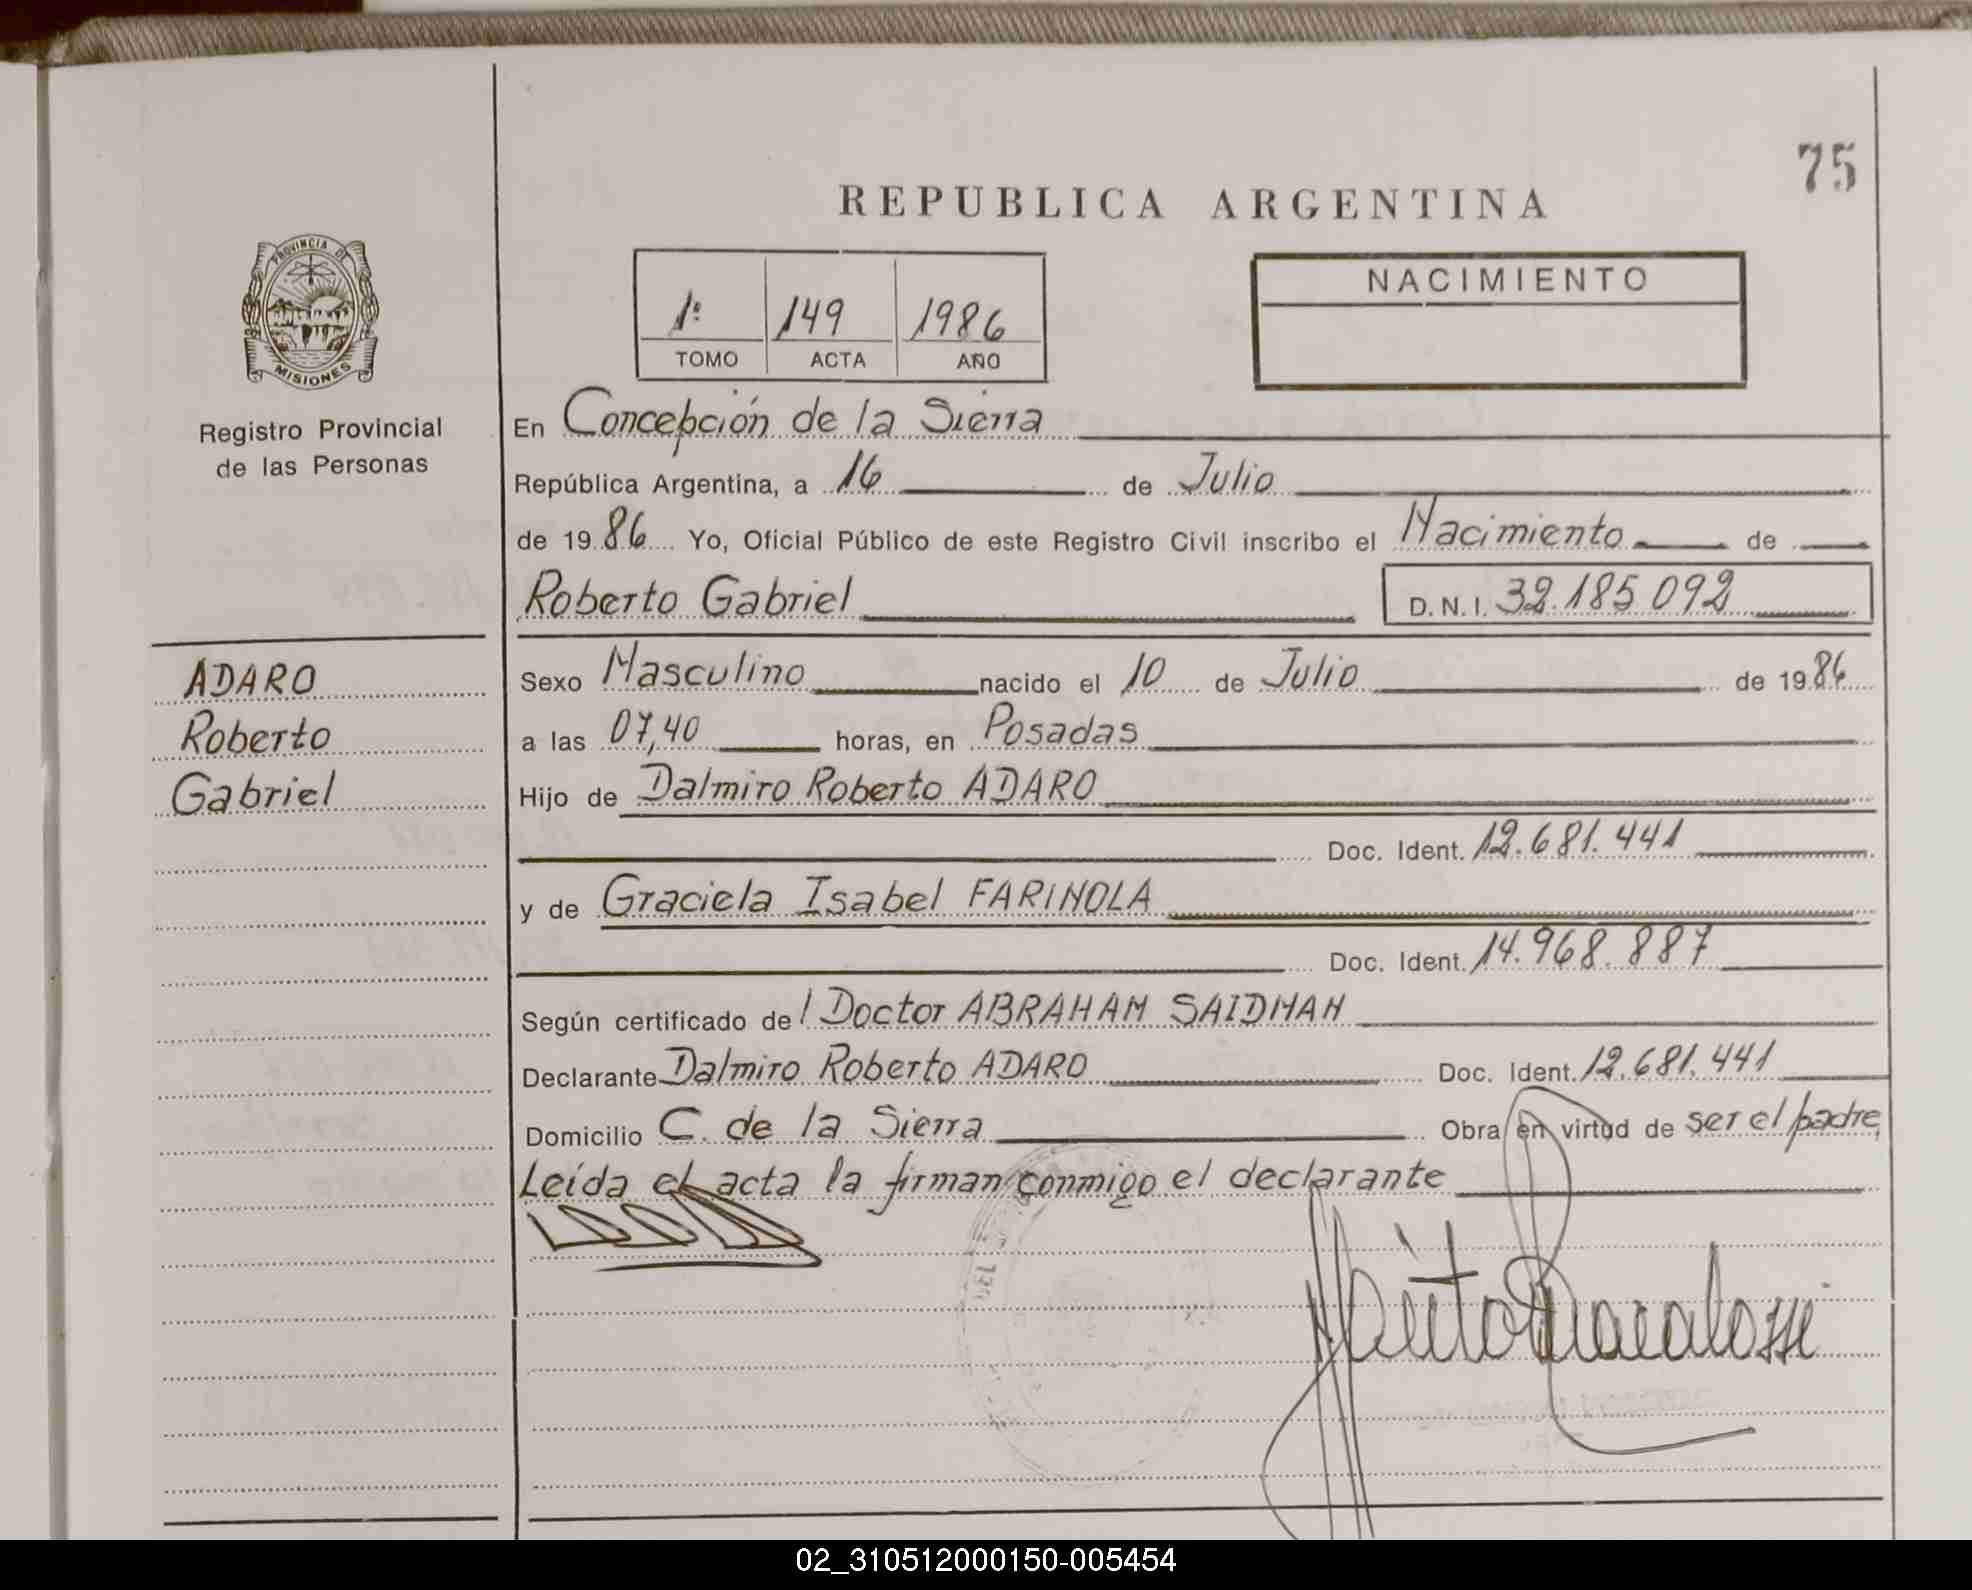 75
REPUBLICA ARGENTINA
PROVINCIA DE
MISIONES
Registro Provincial
de las Personas
1º 149 1986
TOMO ACTA AÑO
NACIMIENTO
En Concepción de la Sierra
República Argentina, a 16 de Julio
de 1986 Yo, Oficial Público de este Registro Civil inscribo el Nacimiento de
Roberto Gabriel D.N.I. 32.185.092
ADARO
Roberto
Gabriel
Sexo Masculino nacido el 10 de Julio de 1986
a las 07,40 horas, en Posadas
Hijo de Dalmiro Roberto ADARO
Doc. Ident. 12.681.441
y de Graciela Isabel FARINOLA
Doc. Ident. 14.968.887
Según certificado del Doctor ABRAHAM SAIDMAN
Declarante Dalmiro Roberto ADARO Doc. Ident. 12.681.441
Domicilio C. de la Sierra Obra en virtud de ser el padre,
Leída el acta la firman conmigo el declarante
02_310512000150-005454